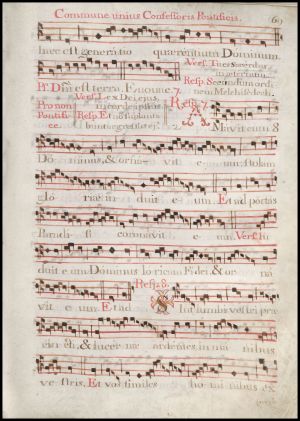 Commune unius Confessoris Pontificis. 69
hæc est generatio quærentium Dominum.
Vers. Tu es Sacerdos
in æternum.
Resp. Secundum ordi
nem Melchisedech.
Ps. Dñi est terra. Euouae. 7.
Vers. Lex Dei ejus
Pro non
Pontifi
ce.
Resp. Et non
Resp. 7.
2. Mavit eum
Dominus, & orna vit e um, stolam
gloriæ in duit e um. Et ad portas
Paradi si coronavit e um. Vers. In
duit eum Dominus loricam Fidei, & or na
vit e um. Et ad
Resp. 8.
Sint lumbi vestri præ
& lucernæ ardentes, in ma nibus
ve stris, Et vos similes ho mi nibus ex